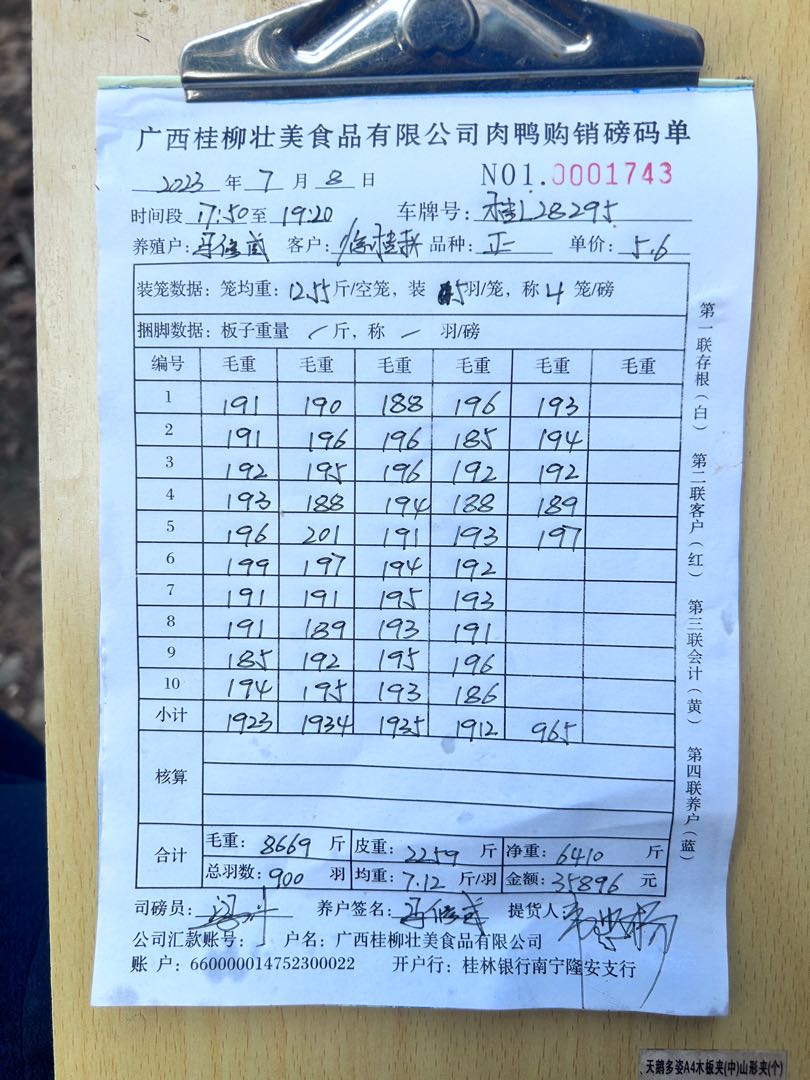 广西桂柳壮美食品有限公司肉鸭购销磅码单
2023 年 7 月 8 日 NO1.0001743
时间段 17:50 至 19:20 车牌号: 桂L28295
养殖户: 客户: 品种: 正 单价: 5.6
装笼数据: 笼均重: 12.55 斤/空笼, 装 5 羽/笼, 称 4 笼/磅
捆脚数据: 板子重量 / 斤, 称 / 羽/磅
编号 毛重 毛重 毛重 毛重 毛重 毛重
1 191 190 188 196 193
2 191 196 196 185 194
3 192 195 196 192 192
4 193 188 194 188 189
5 196 201 191 193 197
6 199 197 194 192
7 191 191 195 193
8 191 189 193 191
9 185 192 195 196
10 194 195 193 186
小计 1923 1934 1935 1912 965
核算
合计 毛重: 8669 斤 皮重: 2259 斤 净重: 6410 斤
总羽数: 900 羽 均重: 7.12 斤/羽 金额: 35896 元
司磅员: 养户签名: 提货人:
公司汇款账号: 户名: 广西桂柳壮美食品有限公司
账 户: 660000014752300022 开户行: 桂林银行南宁隆安支行
第一联存根(白) 第二联客户(红) 第三联会计(黄) 第四联养户(蓝)
、天鹅多姿A4木板夹(中)山形夹(个)